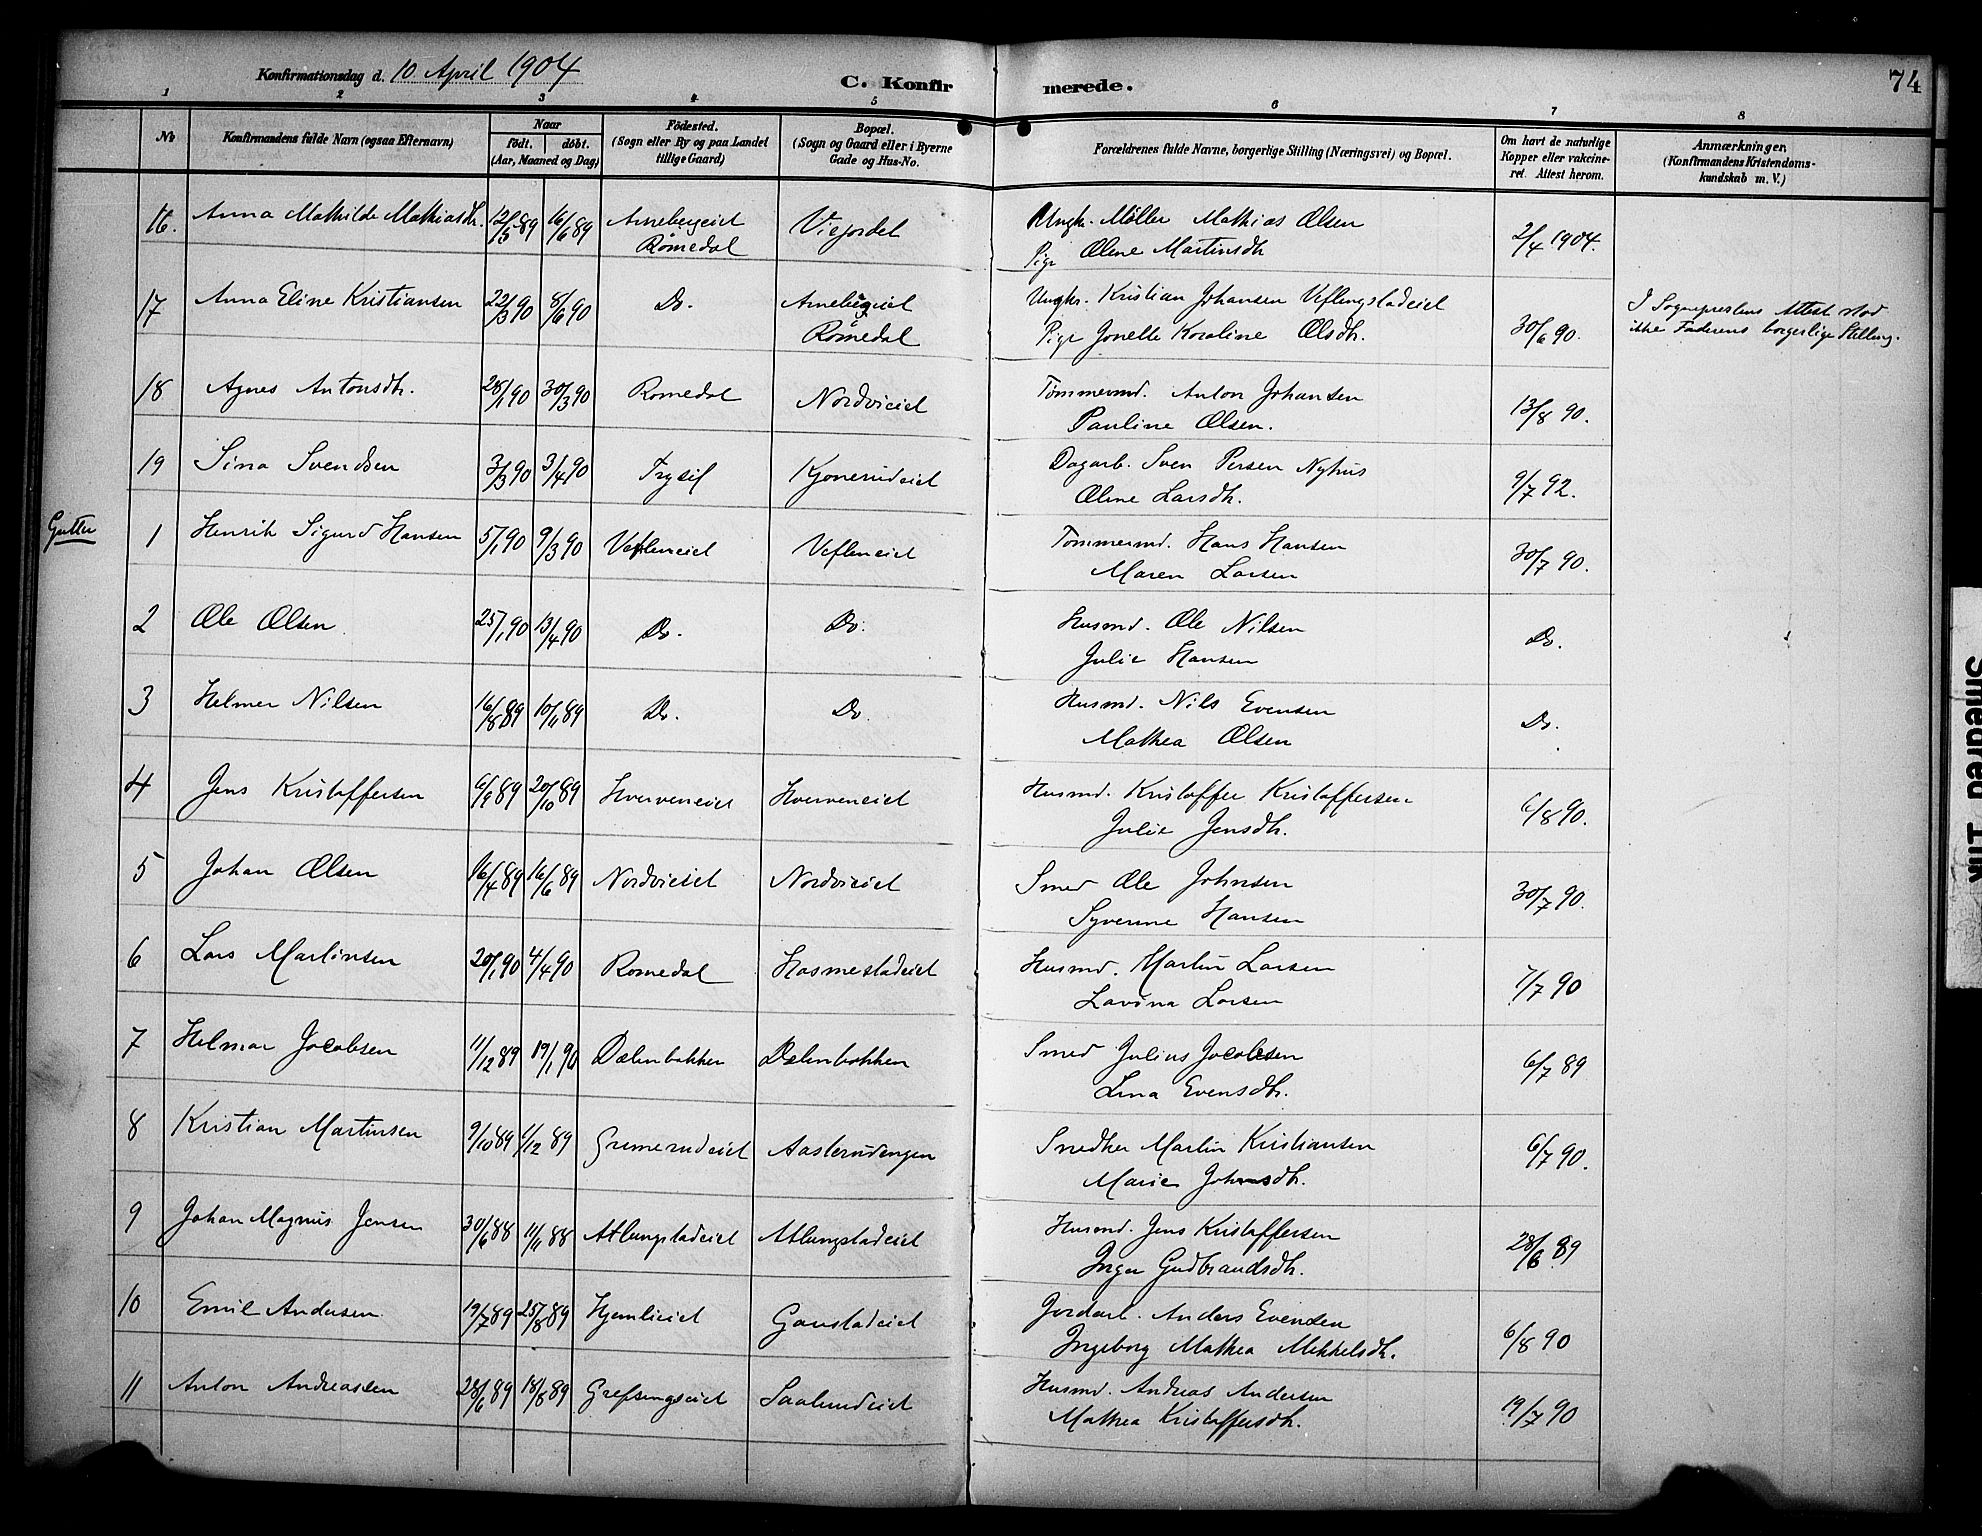 Konfirmationsdag d. 10 April 1904
C. Konfirmerede.
74
1 2 3 4 5 6 7 8
№
Konfirmandens fulde Navn (ogsaa Efternavn)
Naar
født. døbt.
(Aar, Maaned og Dag)
Fødested.
(Sogn eller By og paa Landet
tillige Gaard)
Bopæl.
(Sogn og Gaard eller i Byerne
Gade og Hus-No.
Forældrenes fulde Navne, borgerlige Stilling (Næringsvei) og Bopæl.
Om havt de naturlige
Kopper eller vakcine-
ret. Attest herom.
Anmærkninger.
(Konfirmandens Kristendoms-
kundskab m. V.)
16. Anna Mathilde Mathiasdh. 12/5 89 16/6 89 Arnebergeiet Viejordet Ungk. Møller Mathias Olsen 2/4 1904.
Romedal Pige Oline Martinsdh
17 Anna Eline Kristiansen 22/3 90 8/6 90 Do. Arnebergeiet Ungkr. Kristian Johansen Veflingstadeiet 30/6 90. I Sogneprestens Attest stod
Romedal Pige Jonette Karoline Olsdh. ikke Faderens borgerlige Stilling.
18 Agnes Antonsdh. 28/1 90 30/3 90 Romedal Nordvieiet Tømmermd. Anton Johansen 13/8 90.
Pauline Olsen.
19 Sina Svendsen 3/3 90 3/4 90 Trysil Kjonerudeiet Dagarb. Sven Persen Nyhus 9/7 92.
Oline Larsdh.
Gutter
1 Henrik Sigurd Hansen 5/1 90 9/3 90 Vefleneiet Vefleneiet Tømmermd. Hans Hansen 30/7 90.
Maren Larsen
2 Ole Olsen 25/1 90 13/4 90 Do. Do. Husmd. Ole Nilsen Do.
Julie Hansen
3 Helmer Nilsen 16/8 89 10/11 89 Do. Do. Husmd. Nils Evensen Do.
Mathea Olsen
4 Jens Kristoffersen 6/9 89 20/10 89 Hverveneiet Hverveneiet Husmd. Kristoffer Kristoffersen 6/8 90.
Julie Jensdh.
5 Johan Olsen 16/4 89 16/6 89 Nordvieiet Nordvieiet Smed Ole Johnsen 30/7 90.
Syverine Hansen
6 Lars Martinsen 20/1 90 4/4 90 Romedal Hasmestadeiet Husmd. Martin Larsen 7/7 90
Lavina Larsen
7 Helmar Jacobsen 11/12 89 19/1 90 Dælenbakken Dælenbakken Smed Julius Jacobsen 6/7 89
Lina Evensdh.
8 Kristian Martinsen 9/10 89 1/12 89 Grimerudeiet Aasterudengen Snedker Martin Kristiansen 6/7 90.
Marie Johnsdh.
9 Johan Magnus Jensen 30/6 88 11/11 88 Atlungstadeiet Atlungstadeiet Husmd. Jens Kristoffersen 28/6 89
Inger Gudbrandsdh.
10 Emil Andersen 19/7 89 25/8 89 Hjemlieiet Gaustadeiet Jordarb. Anders Evensen 6/8 90
Ingeborg Mathea Mikkelsdh.
11 Anton Andreassen 28/6 89 18/8 89 Grefsengseiet Saalundeiet Husmd. Andreas Andersen 19/7 90
Mathea Kristoffersdh.